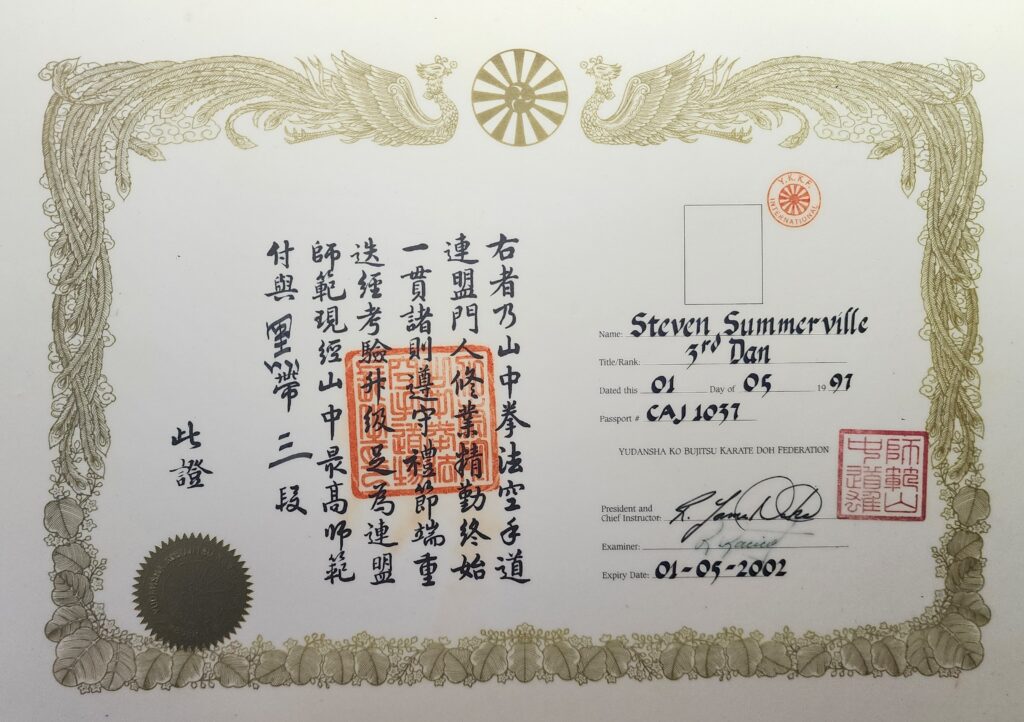 右者乃山中拳法空手道
連盟門人修業精勤終始
一貫諸則遵守禮節端重
迭經考驗升級足為連盟
師範現經山中最高師範
付與黑帶三段
此證
Y.K.K.F. INTERNATIONAL
Name: Steven Summerville
Title/Rank: 3rd Dan
Dated this 01 Day of 05 19 97
Passport # CAJ 1037
YUDANSHA KO BUJITSU KARATE DOH FEDERATION
師範山
中道雄
President and
Chief Instructor:
Examiner:
Expiry Date: 01-05-2002